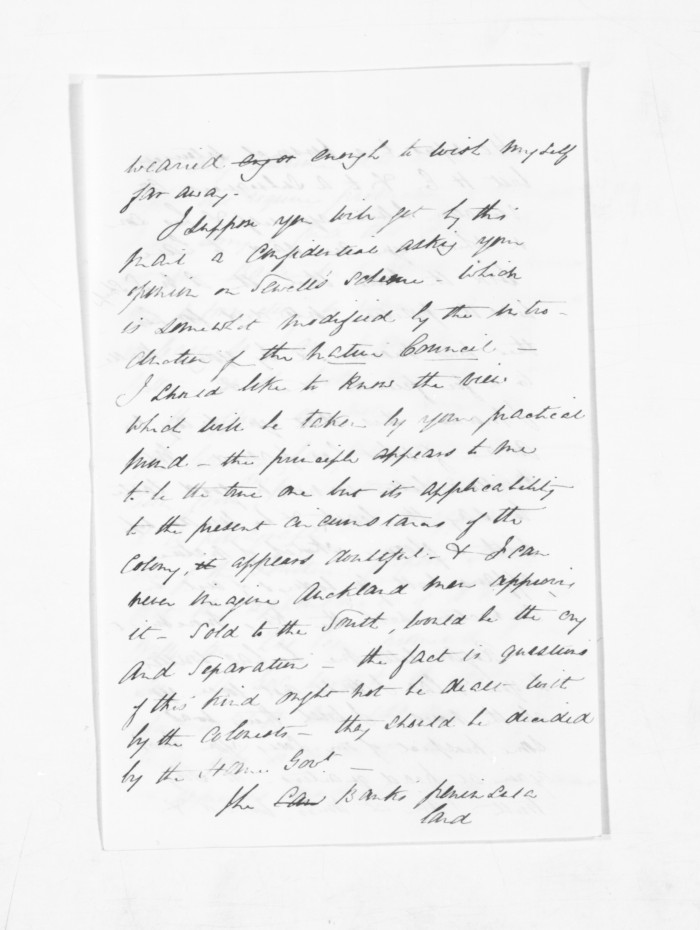 wearied enough to wish myself
far away.
I suppose you will get by this
mail a confidential asking your
opinion on Sewell's scheme - which
is somewhat modified by the intro-
duction of the Native Council -
I should like to know the view
which will be taken by your practical
mind - the principle appears to me
to be the true one but its applicability
to the present circumstances of the
Colony it appears doubtful - & I can
never imagine Auckland men approving
it - Sold to the South, would be the cry
and Separation - the fact is questions
of this kind ought not be dealt with
by the Colonists - they should be decided
by the Home Govt -
The Banks peninsula
land